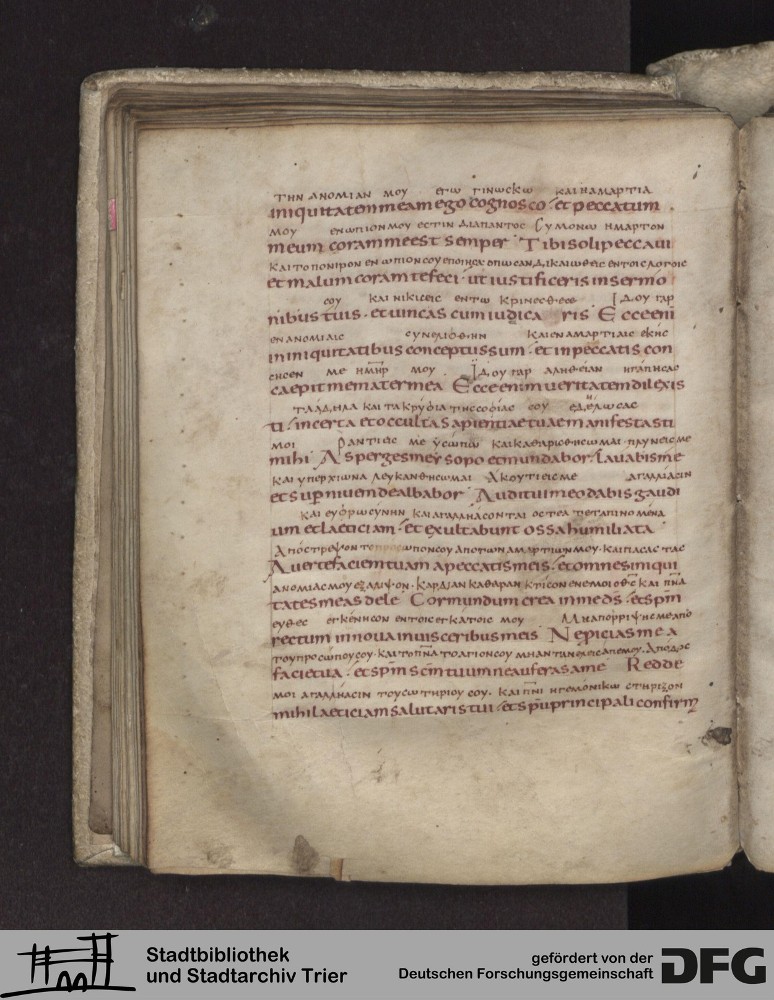 ΤΗΝ ΑΝΟΜΙΑΝ ΜΟΥ ΕΓΩ ΓΙΝΩСΚΩ ΚΑΙ Η ΑΜΑΡΤΙΑ
iniquitatem meam ego cognosco · et peccatum
ΜΟΥ ΕΝΩΠΙΟΝ ΜΟΥ ΕСΤΙΝ ΔΙΑΠΑΝΤΟС СΥ ΜΟΝΩ ΗΜΑΡΤΟΝ
meum coram me est semper · Tibi soli peccavi
ΚΑΙ ΤΟ ΠΟΝΙΡΟΝ ΕΝΩΠΙΟΝ СΟΥ ΕΠΟΙΗСΑ ΟΠΩС ΑΝ ΔΙΚΑΙΩΘΕΙС ΕΝ ΤΟΙС ΛΟΓΟΙС
et malum coram te feci · ut iustificeris in sermo
СΟΥ ΚΑΙ ΝΙΚΙСΕΙС ΕΝ ΤΩ ΚΡΙΝΕСΘΕ ΙΔΟΥ ΓΑΡ
nibus tuis · et vincas cum iudica ris Ecce eni
ΕΝ ΑΝΟΜΙΑΙС СΥΝΕΛΙΦΘΗΝ ΚΑΙ ΕΝ ΑΜΑΡΤΙΑΙС ΕΚΗС
in iniquitatibus conceptus sum · et in peccatis con
СΗСΕΝ ΜΕ Η ΜΗΡ ΜΟΥ ΙΔΟΥ ΓΑΡ ΑΛΗΘΕΙΑΝ ΗΓΑΠΗСΑС
caepit me mater mea Ecce enim veritatem dilexis
ΤΑ ΑΔΗΛΑ ΚΑΙ ΤΑ ΚΡΥΦΙΑ ΤΗС СΟΦΙΑС СΟΥ ΕΔΗΛΩСΑС
ti · incerta et occulta sapientiae tuae manifestasti
ΜΟΙ ΡΑΝΤΙΕΙС ΜΕ ΥСΩΠΩ ΚΑΙ ΚΑΘΑΡΙСΘΗСΩΜΑΙ · ΠΛΥΝΕΙС ΜΕ
mihi Asperges me ysopo et mundabor · Lavabis me
ΚΑΙ ΥΠΕΡ ΧΙΩΝΑ ΛΕΥΚΑΝΘΗСΩΜΑΙ ΑΚΟΥΤΙΕΙС ΜΕ ΑΓΑΛΛΙΑСΙΝ
et sup nivem dealbabor Auditui meo dabis gaudi
ΚΑΙ ΕΥΦΡΩСΥΝΗΝ ΚΑΙ ΑΓΑΛΛΗΑСΟΝΤΑΙ ΟСΤΕΑ ΤΕΤΑΠΙΝΟΜΕΝΑ
um et laeticiam · et exultabunt ossa humiliata
ΑΠΟСΤΡΕΨΟΝ ΤΟ ΠΡΟСΩΠΟΝ СΟΥ ΑΠΟ ΤΩΝ ΑΜΑΡΤΙΩΝ ΜΟΥ · ΚΑΙ ΠΑСΑС ΤΑС
Averte faciem tuam a peccatis meis · et omnes iniqui
ΑΝΟΜΙΑС ΜΟΥ ΕΞΑΛΙΨΟΝ · ΚΑΡΔΙΑΝ ΚΑΘΑΡΑΝ ΚΤΙСΟΝ ΕΝ ΕΜΟΙ Ο ΘС ΚΑΙ ΠΝΑ
tates meas dele Cor mundum crea in me ds · et spm
ΕΥΘΕС ΕΓΚΕΝΗСΟΝ ΕΝ ΤΟΙС ΕΓΚΑΤΟΙС ΜΟΥ ΜΗ ΑΠΟΡΡΙΨΗС ΜΕ ΑΠΟ
rectum innova in visceribus meis Ne picias me a
ΤΟΥ ΠΡΟСΩΠΟΥ СΟΥ · ΚΑΙ ΤΟ ΠΝΑ ΤΟ ΑΓΙΟΝ СΟΥ ΜΗ ΑΝΤΑΝΕΛΕΙС ΑΠ ΕΜΟΥ · ΑΠΟΔΟС
facie tua · et spm scm tuum ne auferas a me Redde
ΜΟΙ ΑΓΑΛΛΗΑСΙΝ ΤΟΥ СΩΤΗΡΙΟΥ СΟΥ · ΚΑΙ ΠΝΙ ΗΓΕΜΟΝΙΚΩ СΤΗΡΙΞΟΝ
mihi laeticiam salutaris tui · et spu principali confirm
Stadtbibliothek
und Stadtarchiv Trier
gefördert von der
Deutschen Forschungsgemeinschaft DFG